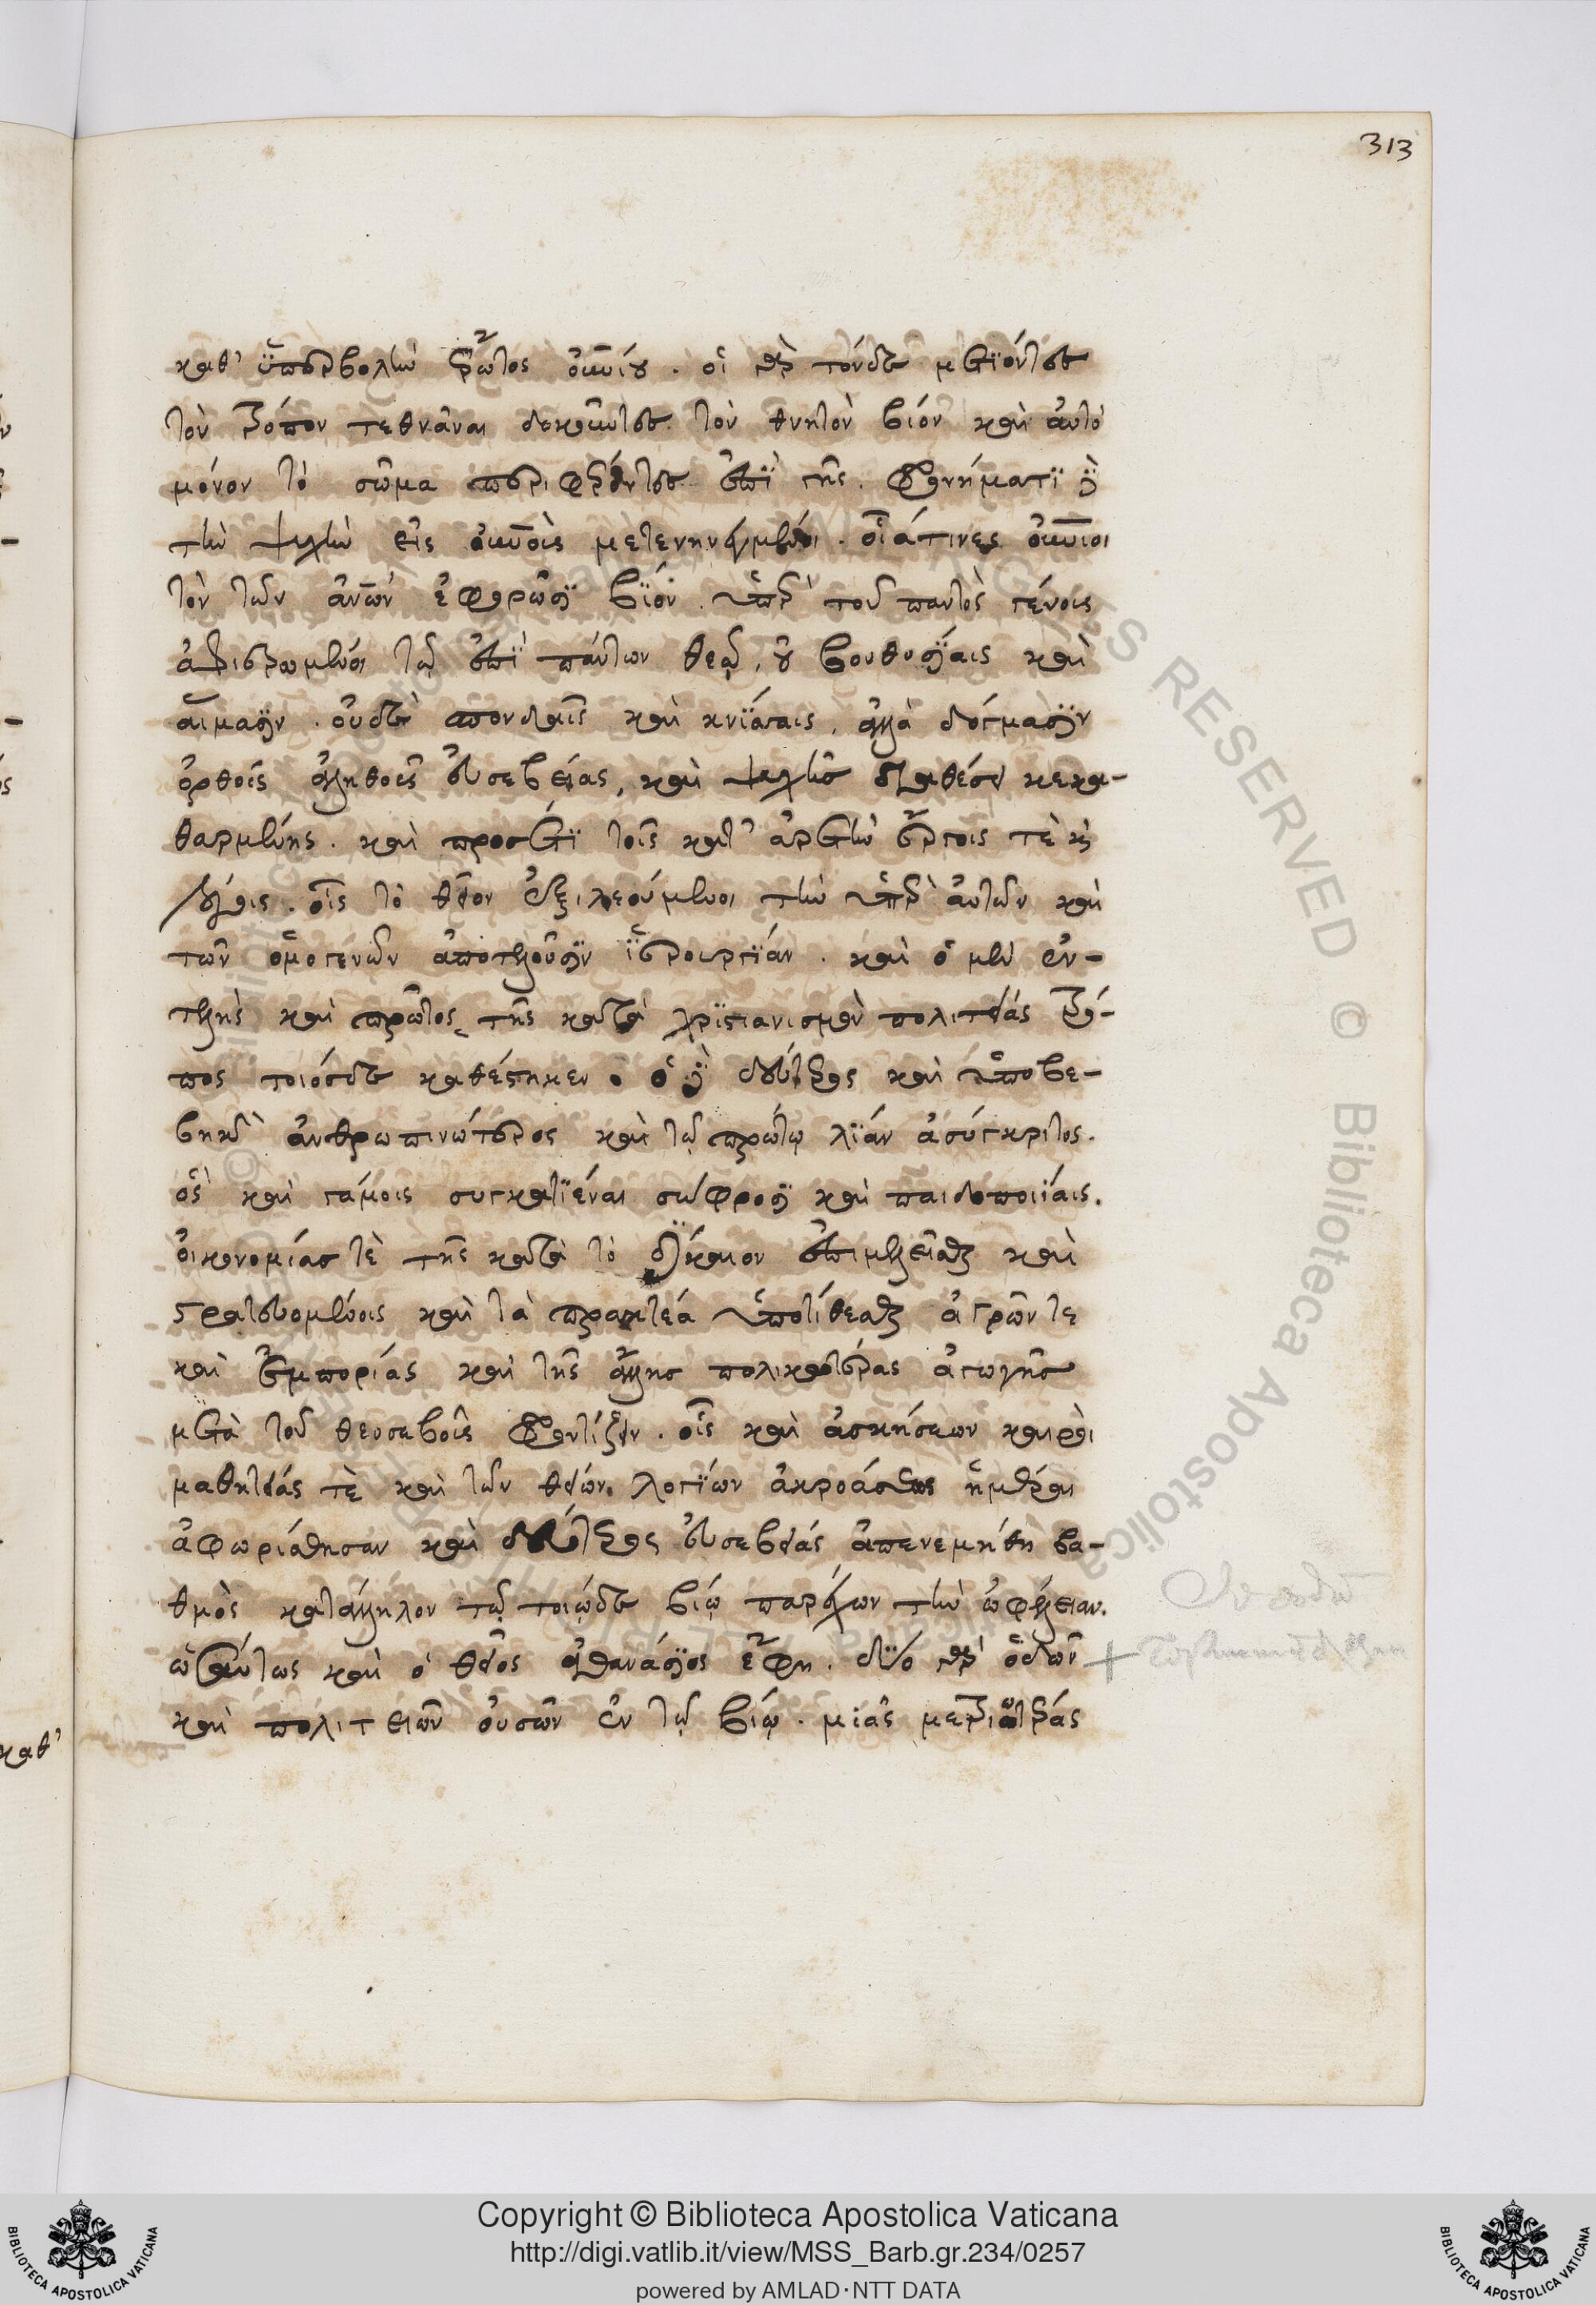 313
καθ' ὑπερβολὴν ἔρωτος οὐνίου . οἱ γὰρ τόνδε μετϊόντες
τὸν τρόπον τεθνάναι δοκοῦντες τὸν θνητὸν βίον καὶ αὐτὸ
μόνον τὸ σῶμα περιφέροντες ἐπῒ γῆς . φρονήματϊ δὲ
τὴν ψυχὴν εἰς οὐνοὺς μετενηνεγμένοι . οἷά τινες οὐνιοι
τὸν τῶν ἀνῶν ἐφορῶσϊ βϊόν . ὑπὲρ τοῦ παντὸς γένους
ἀφιερωμένοι τῷ ἐπῒ πάντων θεῷ , οὐ βουθυσϊαις καὶ
αἵμασϊν . οὐδὲ σπονδαῖς καὶ κνίσαις . ἀλλὰ δόγμασϊν
ὀρθοῖς ἀληθοῦς εὐσεβείας , καὶ ψυχῆς διαθέσει κεκα-
θαρμένης . καὶ προσέτϊ τοῖς κατ' ἀρετὴν ἔργοις τὲ κὶ
λόγοις . οἷς τὸ θεῖον ἐξιλεούμενοι τὴν ὑπὲρ αὐτῶν καὶ
τῶν ὁμογενῶν ἀποτελοῦσϊν ἱερουργϊάν . καὶ ὁ μὲν ἐν-
τελὴς καὶ πρῶτος τῆς κατὰ χρϊστιανισμὸν πολιτείας τρό-
πος τοιόσδε καθέστηκεν . ὁ δὲ δεύτερος καὶ ὑποβε-
βηκὼς ἀνθρωπινώτερος καὶ τῷ πρώτῳ λϊάν ἀσύγκριτος .
ὡς καὶ γάμοις συγκατϊέναι σώφροσϊ καὶ παιδοποιΐαις .
οἰκονομίασ τὲ τῆς κατὰ τὸ δίκαιον ἐπιμελεῖσθαι καὶ
στρατευομένοις καὶ τὰ πρακτέα ὑποτίθεσθαι ἀγρῶν τε
καὶ ἐμπορίας καὶ τῆς ἄλλησ πολικωτέρας ἀγωγῆς
μετὰ τοῦ θεοσεβοῦς φροντίζειν . οἷς καὶ ἀσκήσεων καιροὶ
μαθητείας τὲ καὶ τῶν θείων λογϊων ἀκροάσεως ἡμέραι
ἀφωρίσθησαν καὶ δεύτερος εὐσεβείας ἀπενεμήθη βα-
θμὸς κατάλληλον τῷ τοιῷδε βίῳ παρέχων τὴν ὠφέλειαν .
ὡσαύτως καὶ ὁ θεῖος ἀθανάσϊος ἔφη . δύο γὰρ ὁδῶν
καὶ πολιτειῶν οὐσῶν ἐν τῷ βίῳ . μιᾶς μετριωτέρας
καθ'
Copyright © Biblioteca Apostolica Vaticana
http://digi.vatlib.it/view/MSS_Barb.gr.234/0257
powered by AMLAD·NTT DATA
BIBLIOTECA APOSTOLICA VATICANA
BIBLIOTECA APOSTOLICA VATICANA